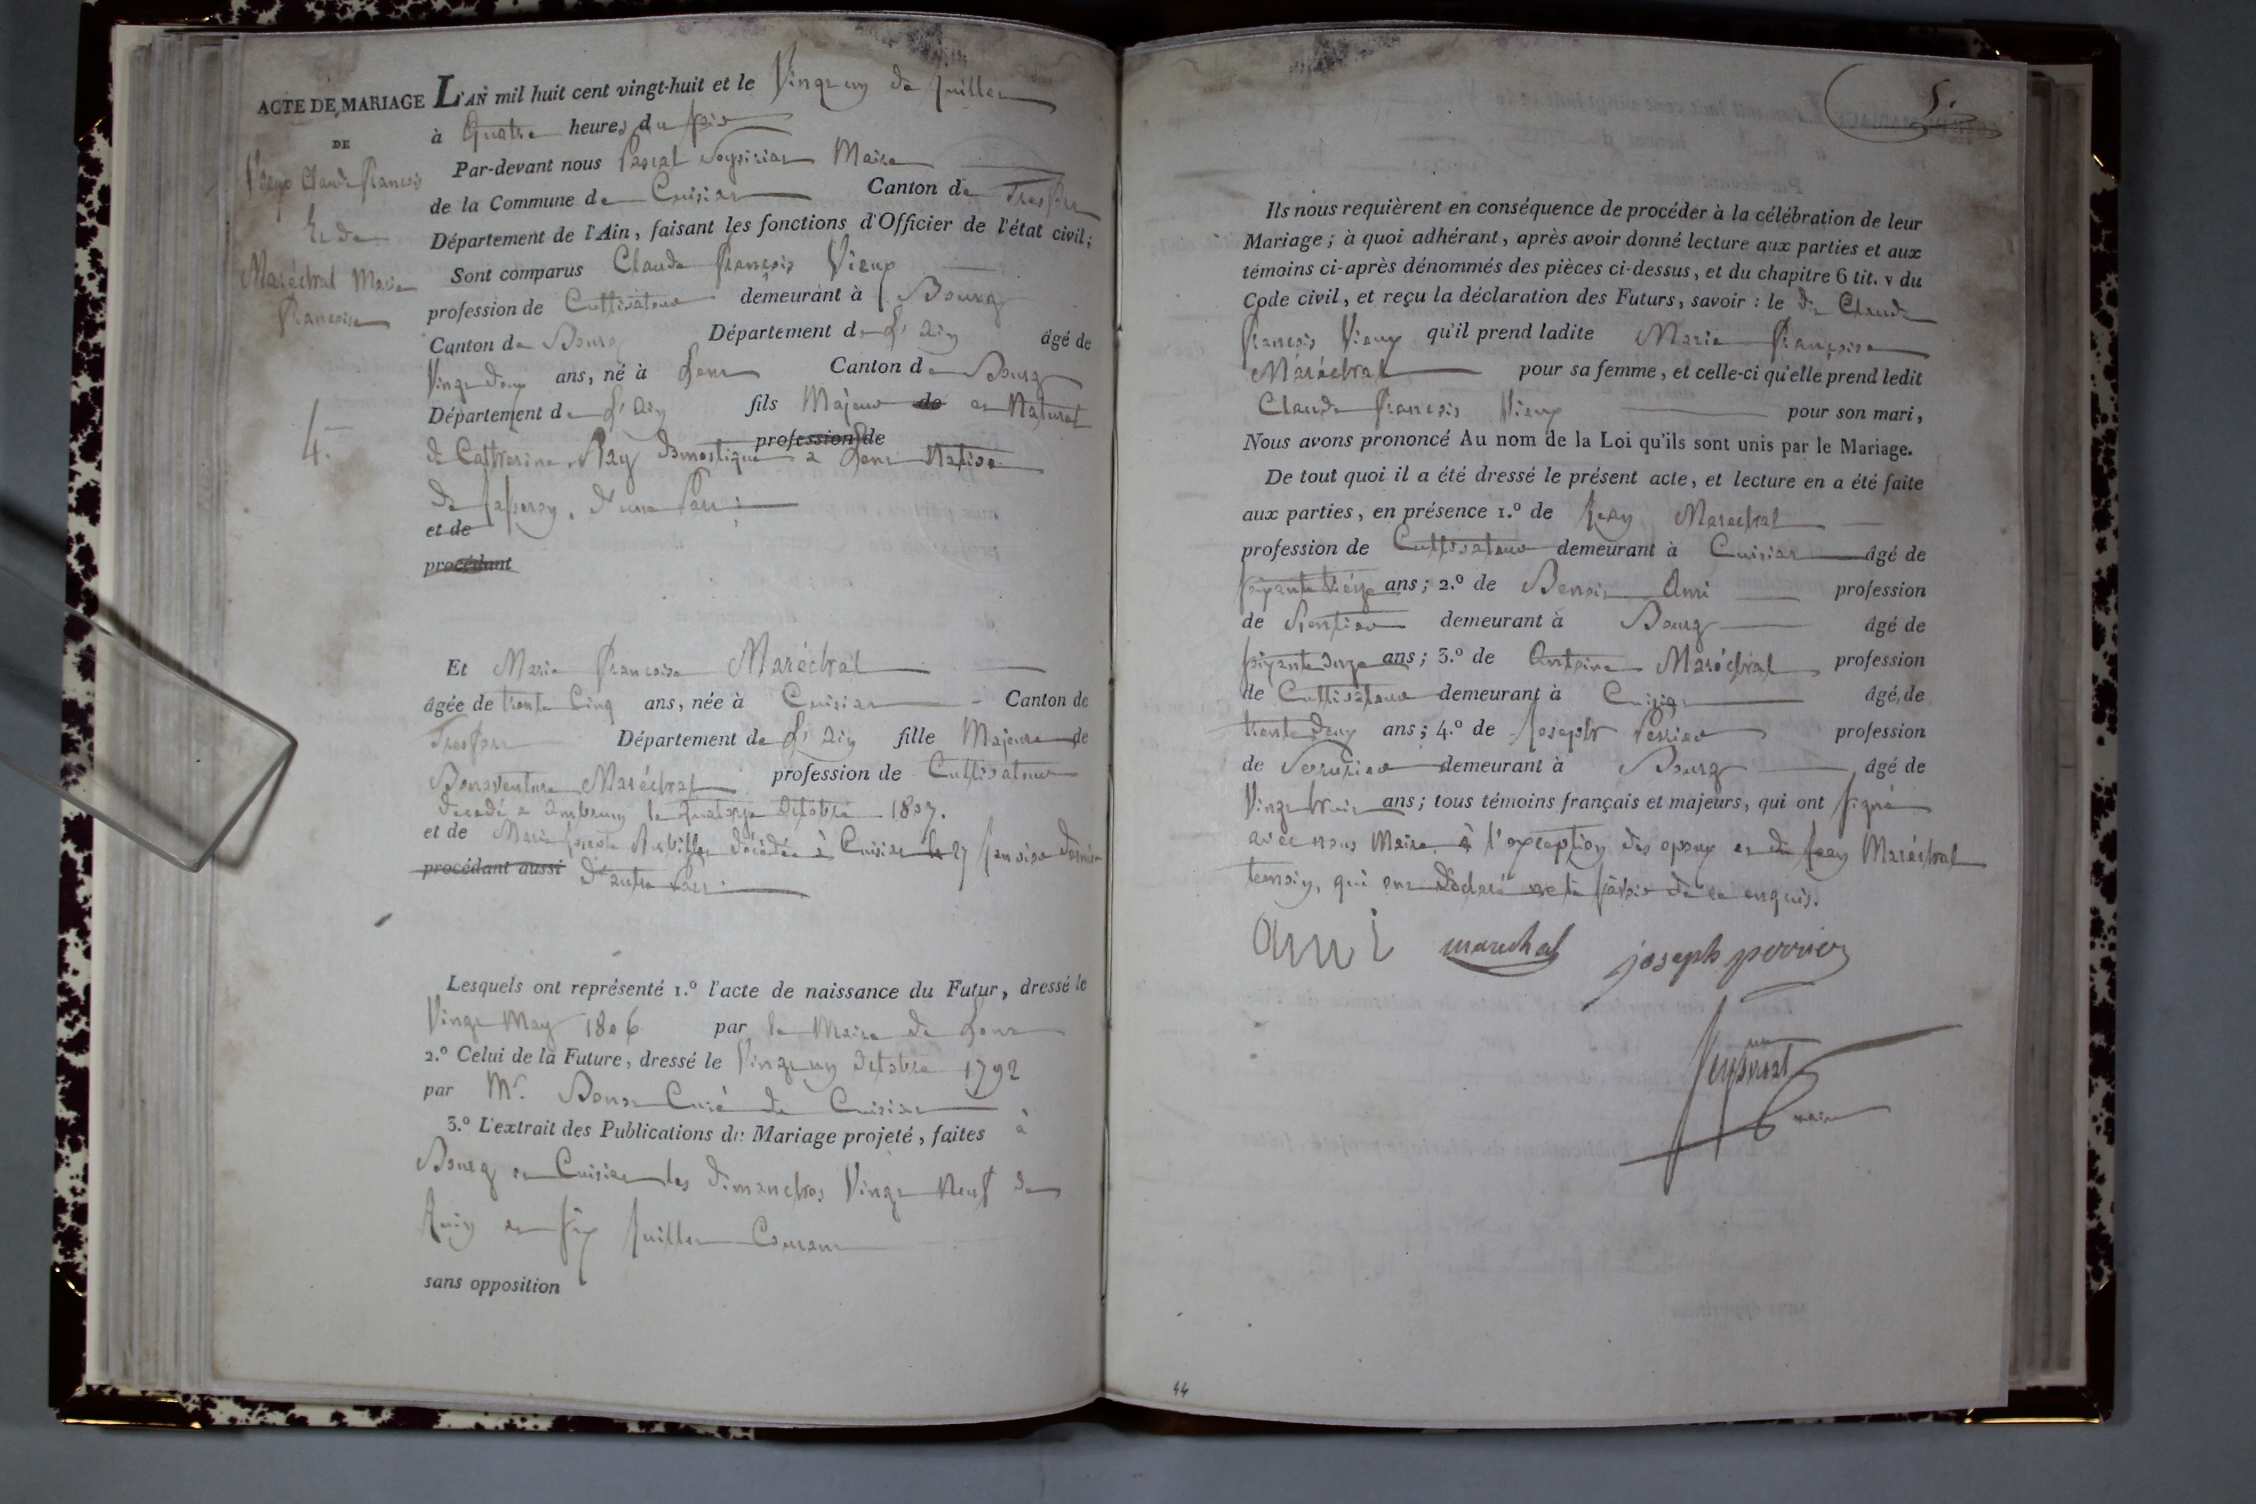 ACTE DE MARIAGE
DE
Vieux Claude François
Et de
Maréchal Marie
Françoise
4.
L'AN mil huit cent vingt-huit et le Vingt un de Juillet
à Quatre heures du soir
Par-devant nous Pascal Maire
de la Commune de Cuisiat Canton de Treffort
Département de l'Ain, faisant les fonctions d'Officier de l'état civil;
Sont comparus Claude François Vieux
profession de Cultivateur demeurant à Bourg
Canton de Bourg Département de L'Ain âgé de
Vingt deux ans, né à Lent Canton de Bourg
Département de L'Ain fils Majeur de et Naturel
profession de
de Catherine Ray Domestique a Lent Native
de d'une Part;
et de
procédant
Et Marie Françoise Maréchal
âgée de trente Cinq ans, née à Cuisiat Canton de
Treffort Département de L'Ain fille Majeure de
Bonaventure Maréchal profession de Cultivateur
décédé a le quatorze Octobre 1807.
et de Marie décédée à Cuisiat le 27 Janvier dernier
procédant aussi d'autre Part.
Lesquels ont représenté 1.º l'acte de naissance du Futur, dressé le
Vingt May 1806 par le Maire de Lent
2.º Celui de la Future, dressé le Vingt un Octobre 1792
par Mr. Curé de Cuisiat
3.º L'extrait des Publications du Mariage projeté, faites à
Bourg et Cuisiat les dimanches Vingt Neuf de
Juin et six Juillet Courant
sans opposition
5.
Ils nous requièrent en conséquence de procéder à la célébration de leur
Mariage; à quoi adhérant, après avoir donné lecture aux parties et aux
témoins ci-après dénommés des pièces ci-dessus, et du chapitre 6 tit. v du
Code civil, et reçu la déclaration des Futurs, savoir : le dt Claude
François Vieux qu'il prend ladite Marie Françoise
Maréchal pour sa femme, et celle-ci qu'elle prend ledit
Claude François Vieux pour son mari,
Nous avons prononcé Au nom de la Loi qu'ils sont unis par le Mariage.
De tout quoi il a été dressé le présent acte, et lecture en a été faite
aux parties, en présence 1.º de Jean Marechal
profession de Cultivateur demeurant à Cuisiat âgé de
ans; 2.º de Benoit Ami profession
de Rentier demeurant à Bourg âgé de
ans; 3.º de Antoine Maréchal profession
de Cultivateur demeurant à Cuisiat âgé de
trente deux ans; 4.º de Joseph Perrier profession
de Serrurier demeurant à Bourg âgé de
Vingt trois ans; tous témoins français et majeurs, qui ont signé
avec nous Maire à l'exception des epoux et du Jean Maréchal
temoin, qui ont déclaré ne le savoir de ce enquis.
Ami marechal joseph perrier
maire
44